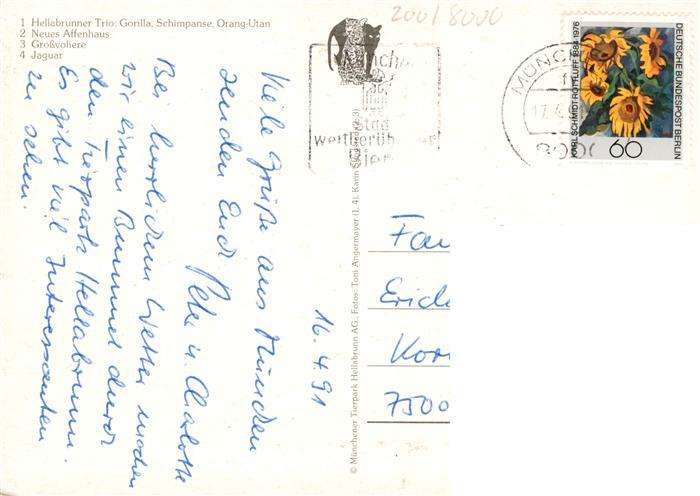 1 Hellabrunner Trio: Gorilla, Schimpanse, Orang-Utan
2 Neues Affenhaus
3 Großvoliere
4 Jaguar
2001/8000
Münche
Stad
weltberühm
Bier
MÜNC
17.4.
DEUTSCHE BUNDESPOST BERLIN
KARL SCHMIDT-ROTTLUFF 1884-1976
60
16.4.91
Viele Grüße aus München
senden Euch Peter u. Charlotte
Bei herrlichem Wetter machen
wir einen Bummel durch
den Tierpark Hellabrunn.
Es gibt viel Interessantes
zu sehen.
© Münchener Tierpark Hellabrunn AG., Fotos: Toni Angermayer (1, 4), Karin
Fam
Erich
Kor
7500